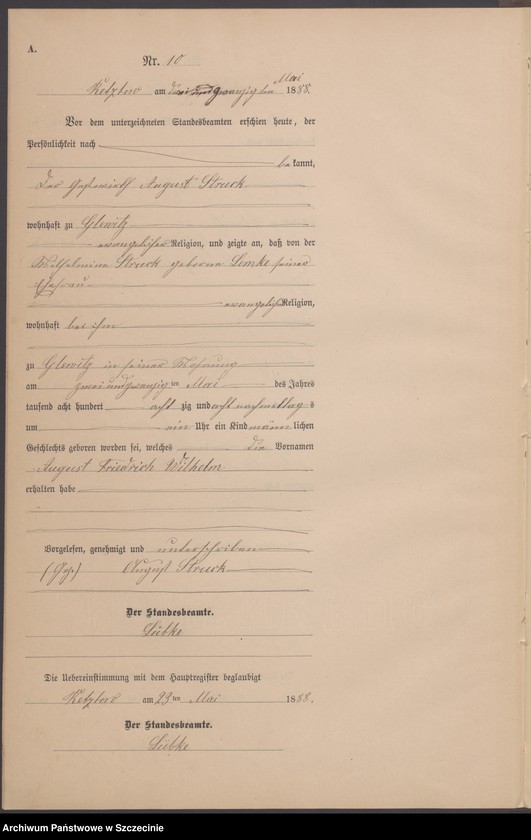 A.
Nr. 10
am dreiundzwanzigsten Mai 1888.
Vor dem unterzeichneten Standesbeamten erschien heute, der
Persönlichkeit nach
bekannt,
Der August Struck
wohnhaft zu Glewitz
evangelischer Religion, und zeigte an, daß von der
Wilhelmine Struck geborne Lemke seiner
Ehefrau
evangelischer Religion,
wohnhaft bei ihm
zu Glewitz in seiner Wohnung
am zweiundzwanzigsten Mai des Jahres
tausend acht hundert acht zig und acht nachmittags
um ein Uhr ein Kind männlichen
Geschlechts geboren worden sei, welches die Vornamen
August Friedrich Wilhelm
erhalten habe
Vorgelesen, genehmigt und unterschrieben
(Gez.) August Struck
Der Standesbeamte.
Lübke
Die Uebereinstimmung mit dem Hauptregister beglaubigt
am 23ten Mai 1888.
Der Standesbeamte.
Lübke
Archiwum Państwowe w Szczecinie